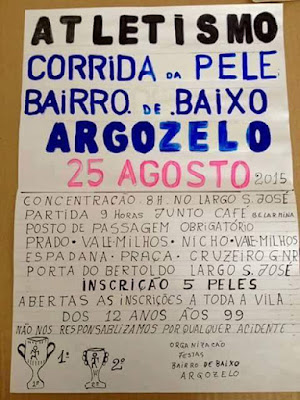 ATLETISMO
CORRIDA DA PELE
BAIRRO. DE .BAIXO
ARGOZELO
25 AGOSTO 2015
CONCENTRACÃO. 8H. NO LARGO S. JOSÉ
PARTIDA 9 HORAS JUNTO CAFÉ BELARMINA
POSTO DE PASSAGEM OBRIGATÓRIO
PRADO. VALE-MILHOS. NICHO. VALE-MILHOS
ESPADANA. PRAÇA. CRUZEIRO G.N.R
PORTA DO BERTOLDO LARGO S. JOSÉ
INSCRIÇÃO 5 PELES
ABERTAS AS INSCRIÇÕES A TODA A VILA
DOS 12 ANOS AOS 99
NÃO NOS RESPONSABLIZAMOS POR QUALQUER ACIDENTE
1º 2º
ORGANIZAÇÃO
FESTAS
BAIRRO DE BAIXO
ARGOZELO
1º 2º